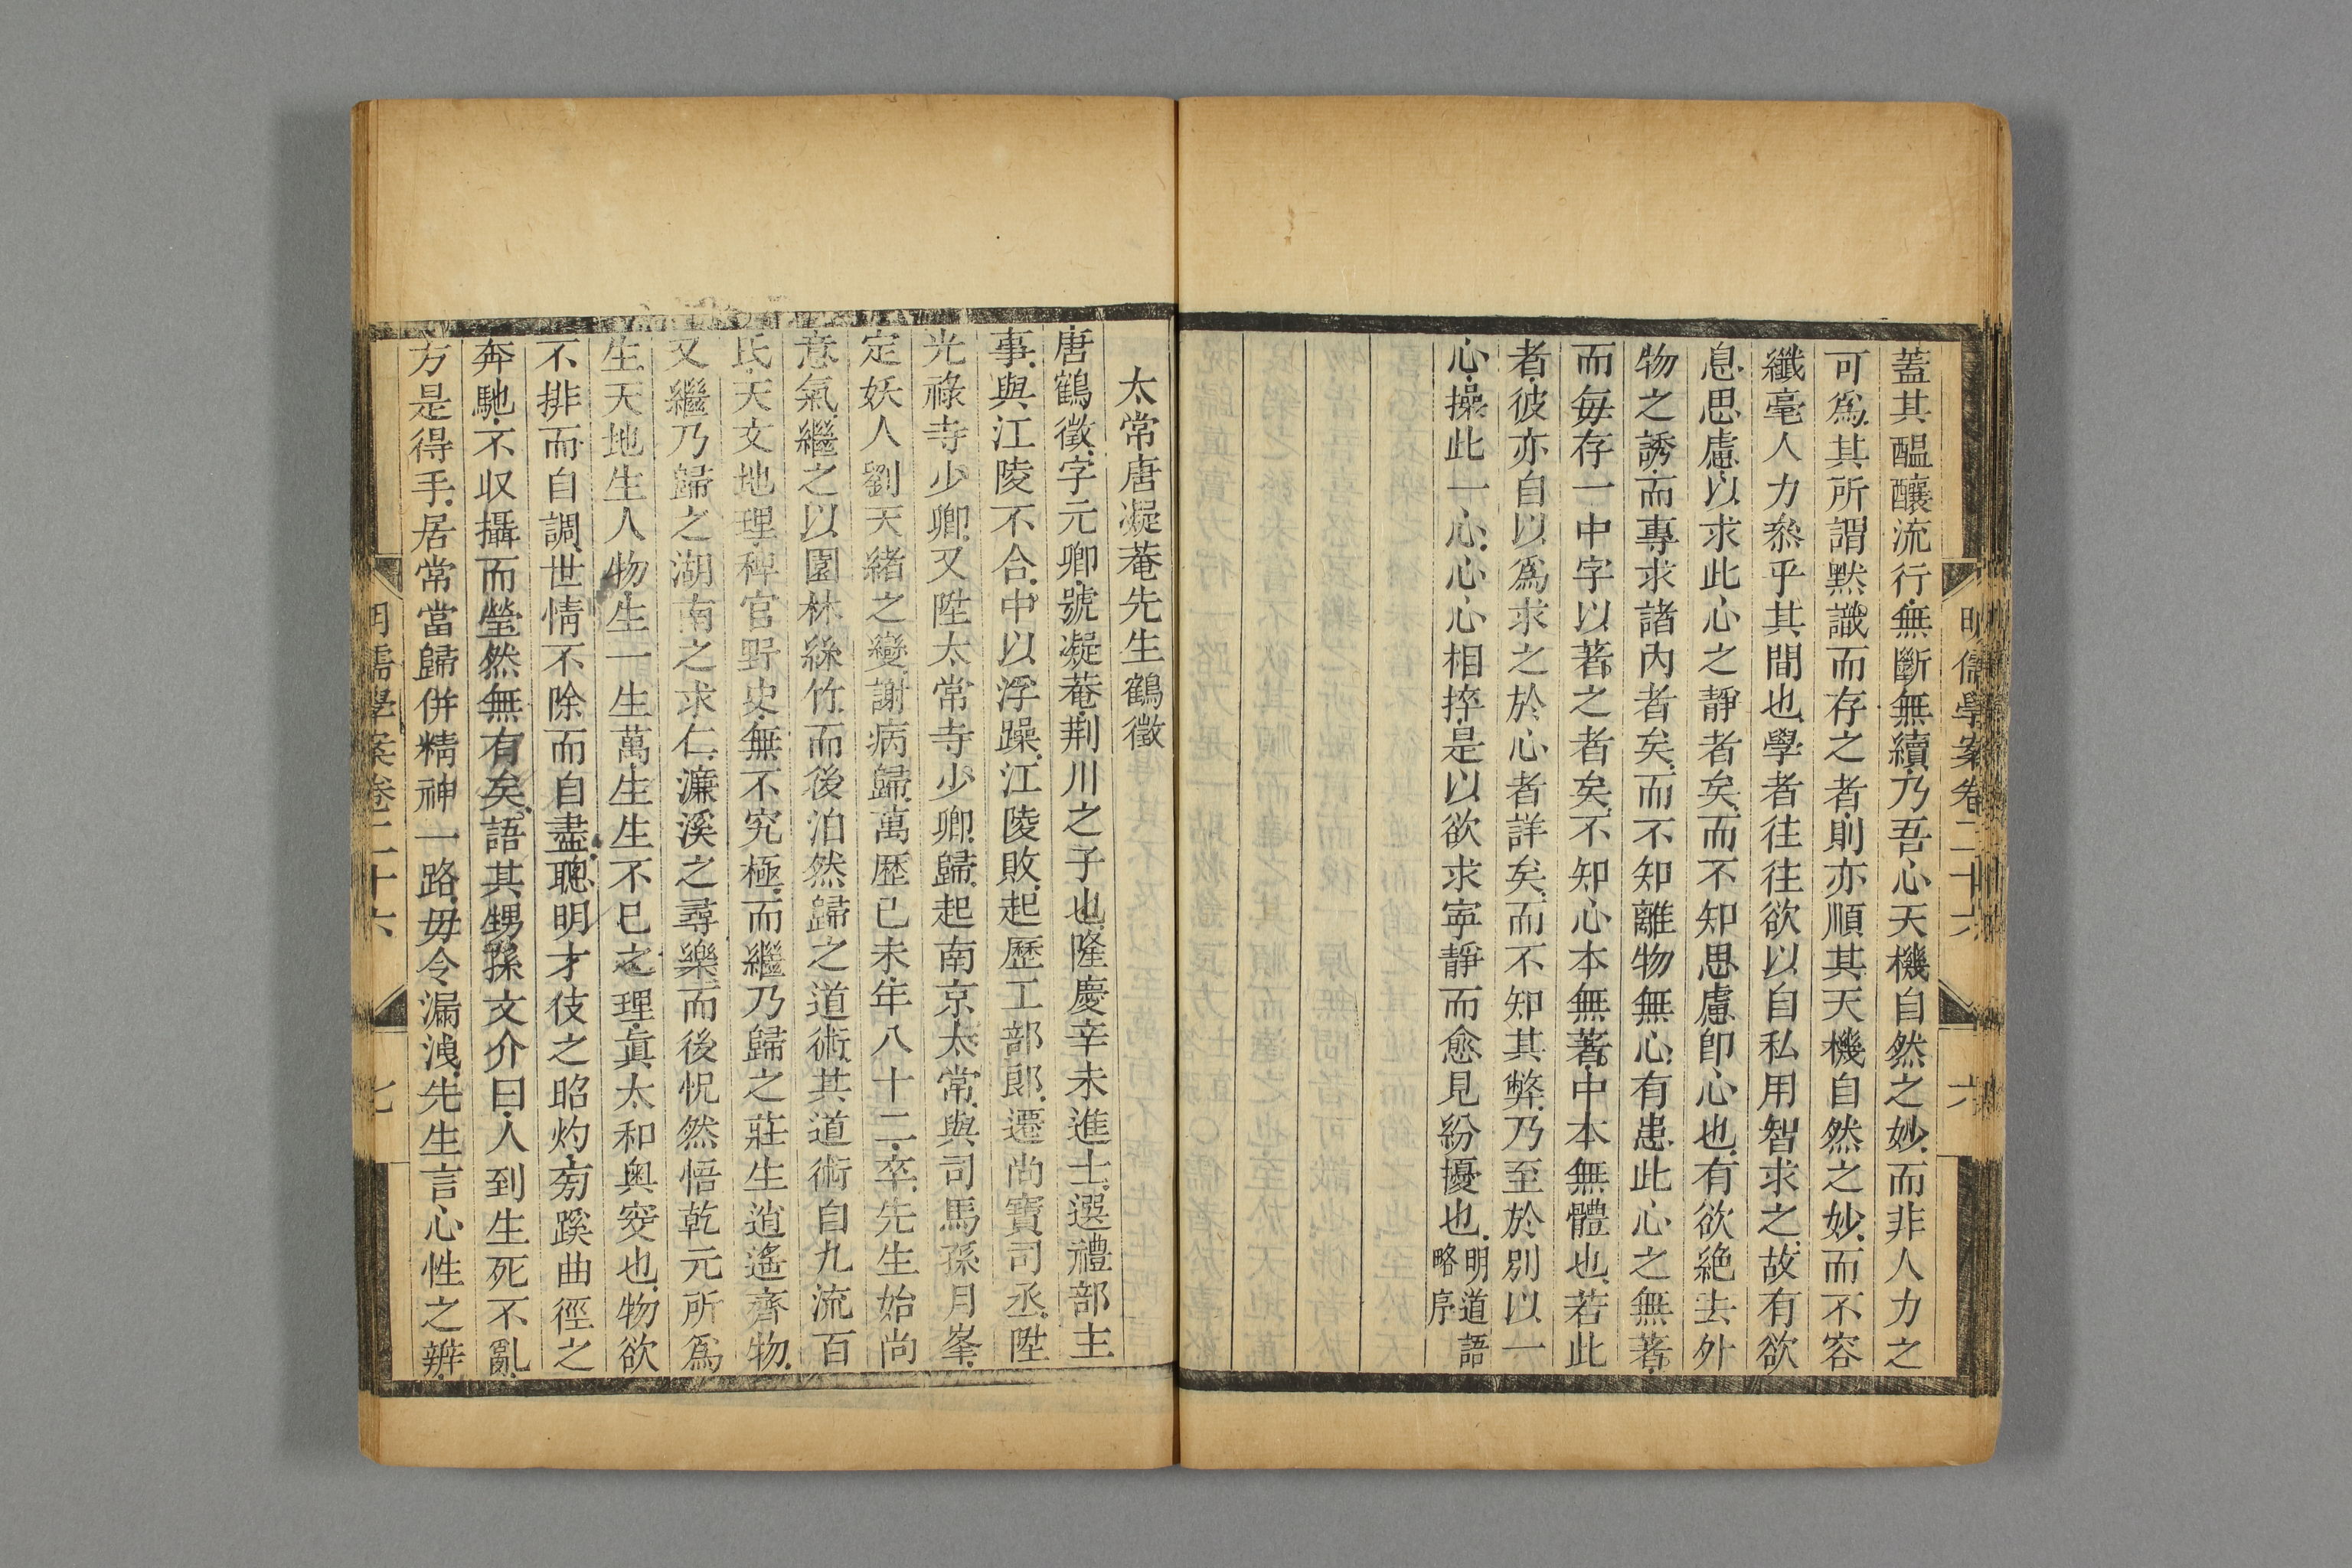 明儒學案卷二十六
六
蓋其醞釀流行無斷無續乃吾心天機自然之妙而非人力之
可爲其所謂默識而存之者則亦順其天機自然之妙而不容
纖毫人力叅乎其間也學者往往欲以自私用智求之故有欲
息思慮以求此心之靜者矣而不知思慮卽心也有欲絕去外
物之誘而專求諸內者矣而不知離物無心也有患此心之無著
而每存一中字以著之者矣不知心本無著中本無體也若此
者彼亦自以爲求之於心者詳矣而不知其弊乃至於別以一
心操此一心心心相捽是以欲求寧靜而愈見紛擾也 明道語
略序
太常唐凝菴先生鶴徵
唐鶴徵字元卿號凝菴荆川之子也隆慶辛未進士選禮部主
事與江陵不合中以浮躁江陵敗起歷工部郎遷尚寶司丞陞
光祿寺少卿又陞太常寺少卿歸起南京太常與司馬孫月峯
定妖人劉天緒之變謝病歸萬歷己未年八十二卒先生始尚
意氣繼之以園林絲竹而後泊然歸之道術其道術自九流百
氏天文地理稗官野史無不究極而繼乃歸之莊生逍遙齊物
又繼乃歸之湖南之求仁濂溪之尋樂而後怳然悟乾元所爲
生天地生人物生一生萬生生不已之理眞太和奧窔也物欲
不排而自調世情不除而自盡聰明才伎之昭灼旁蹊曲徑之
奔馳不收攝而瑩然無有矣語其甥孫文介曰人到生死不亂
方是得手居常當歸併精神一路毋令漏洩先生言心性之辨
明儒學案卷二十六
七